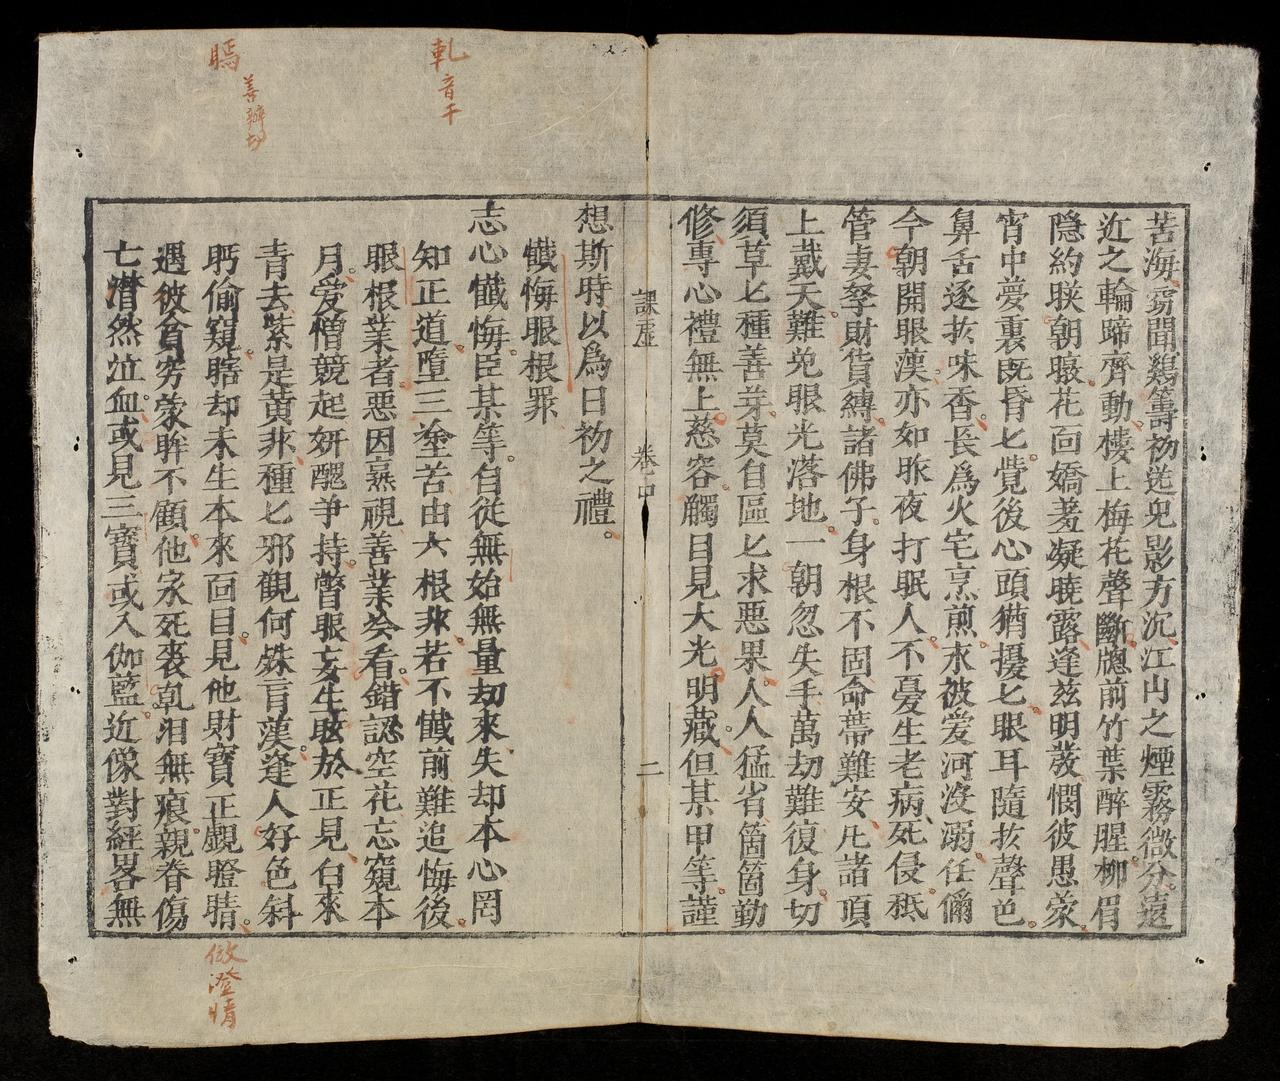 苦海窃聞鷄籌初送兎影方沉江山之煙霧微分遠
近之輪蹄齊動樓上梅花聲斷牕前竹葉醉腥柳眉
隠約联朝暾花面嬌羞凝曉露逢兹明發憫彼愚蒙
宵中夢裏既昏匕覺後心頭猶擾匕眼耳隨於聲色
鼻舌逐於味香長爲火宅烹煎永被爱河没溺任儞
今朝開眼漢亦如昨夜打眠人不憂生老病死侵秪
管妻孥財貨縛諸佛子身根不固命蒂難安凡諸頂
上戴天難免眼光落地一朝忽失手萬劫難復身切
須草匕種善芽莫自區匕求悪果人人猛省箇箇勤
修專心禮無上慈容觸目見大光明藏但某甲等謹
課虚 卷中 二
想斯時以爲日初之禮
懴悔眼根罪
志心懴悔臣某等自從無始無量劫來失却本心罔
知正道墮三塗苦由六根非若不懴前難追悔後
眼根業者悪因熹視善業癸看錯認空花忘窺本
月爱憎競起妍醜争持瞥眼妄生眩於正見白來
青去紫是黄非種匕邪觀何殊盲漢逢人好色斜
眄偷窺瞎却未生本來面目見他財寶正覷瞪睛
遇彼貧穷蒙眸不顧他家死喪乹泪無痕親眷傷
亡潸然泣血或見三寶或入伽藍近像對經畧無
軋音干
瞗
善辦切
倣澄晴